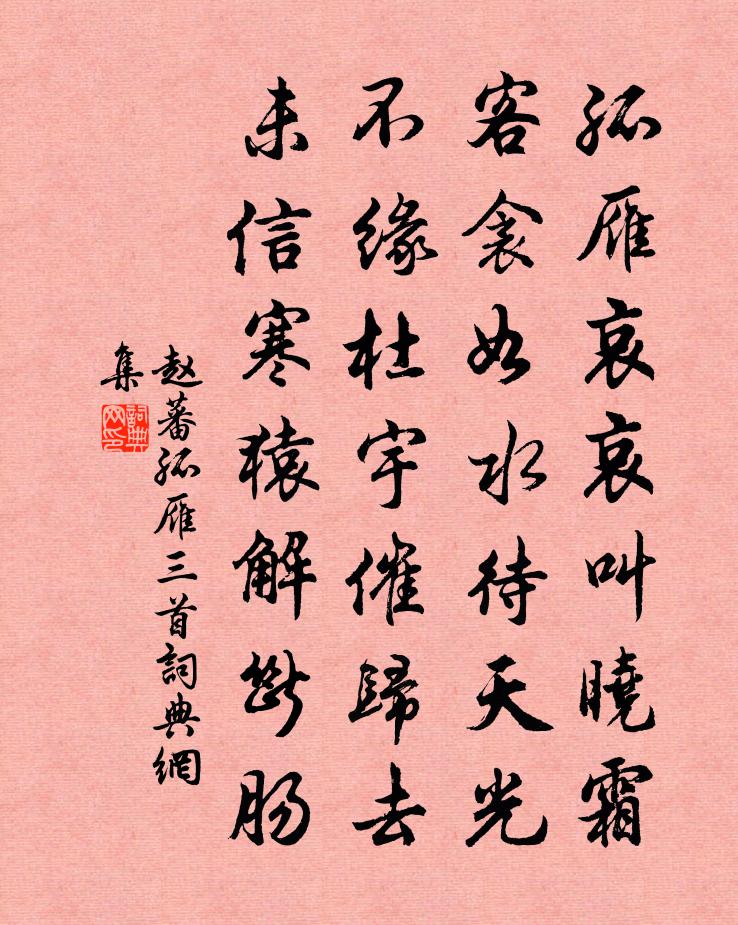 孤雁哀哀叫曉霜
客衾如水待天光
不緣杜宇催歸去
未信寒猿解斷腸
赵蕃孤雁三首詞典網
集
詞典
网印